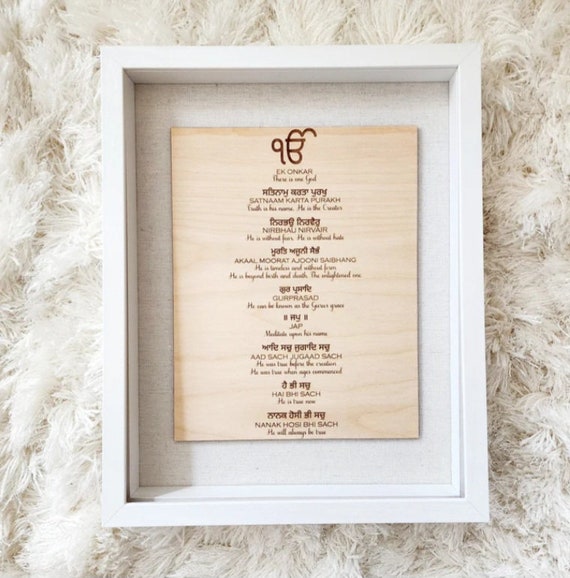 ੴ
EK ONKAR
There is one God
ਸਤਿਨਾਮੁ ਕਰਤਾ ਪੁਰਖੁ
SATNAAM KARTA PURAKH
Truth is his name. He is the Creator
ਨਿਰਭਉ ਨਿਰਵੈਰੁ
NIRBHAU NIRVAIR
He is without fear. He is without hate
ਮੂਰਤਿ ਅਜੂਨੀ ਸੈਭੰ
AKAAL MOORAT AJOONI SAIBHANG
He is timeless and without form
He is beyond birth and death. The enlightened one
ਗੁਰ ਪ੍ਰਸਾਦਿ
GURPRASAD
He can be known as the Gurus grace
॥ ਜਪੁ ॥
JAP
Meditate upon his name
ਆਦਿ ਸਚੁ ਜੁਗਾਦਿ ਸਚੁ
AAD SACH JUGAAD SACH
He was true before the creation
He was true when ages commenced
ਹੈ ਭੀ ਸਚੁ
HAI BHI SACH
He is true now
ਨਾਨਕ ਹੋਸੀ ਭੀ ਸਚੁ
NANAK HOSI BHI SACH
He will always be true